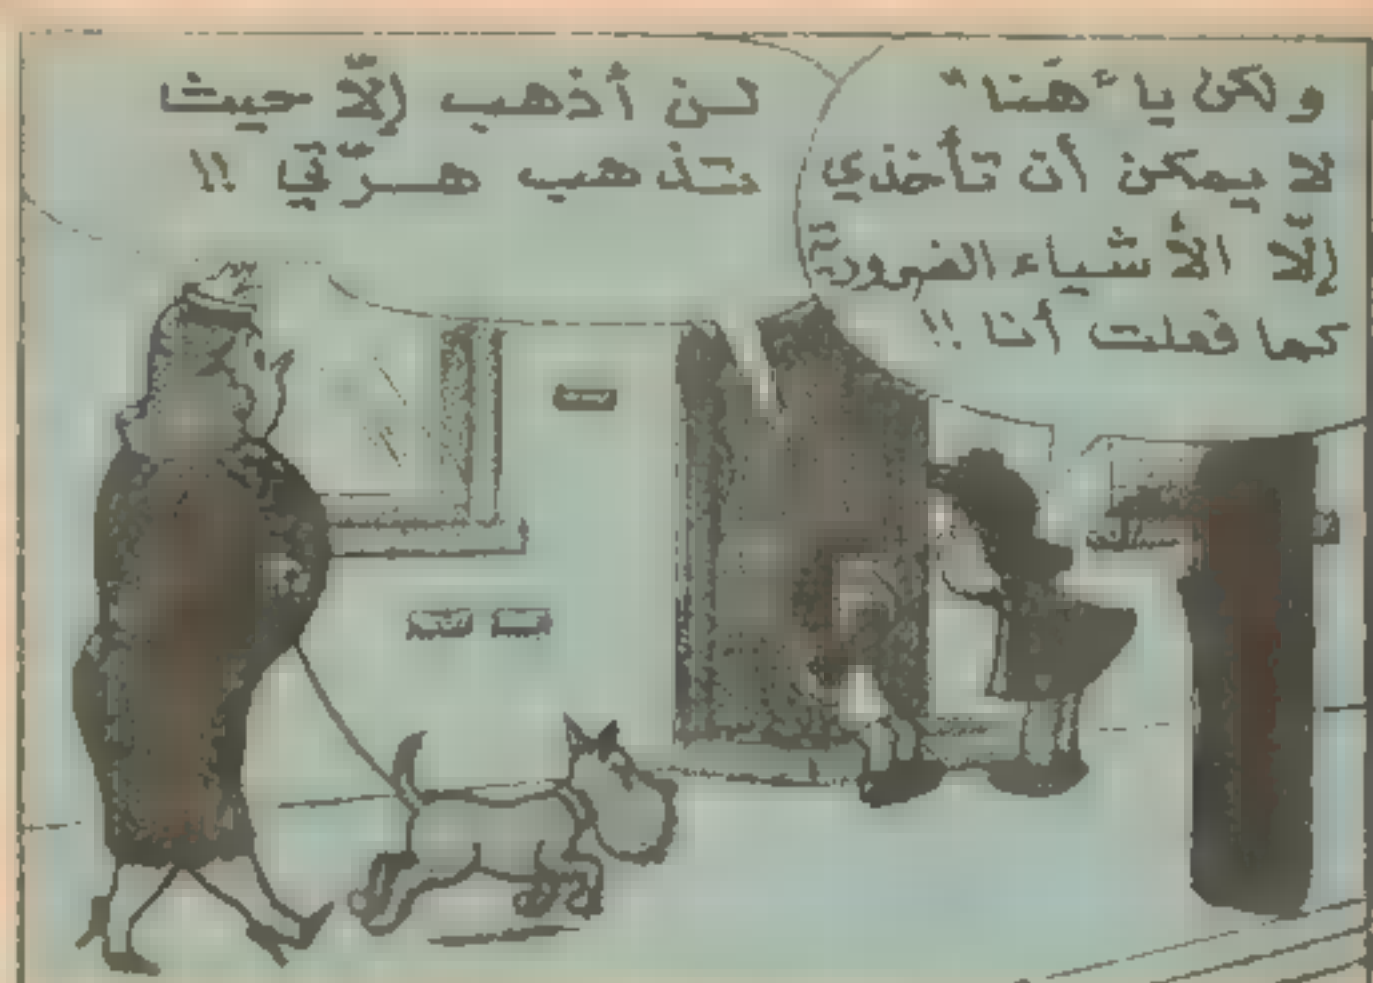 ولكن يا "هنا"
لا يمكن أن تأخذي
إلّا الأشياء الضرورية
كما فعلت أنا !!
لن أذهب إلّا حيث
تذهب هرّتي !!